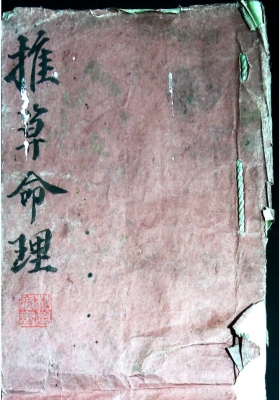 推算命理